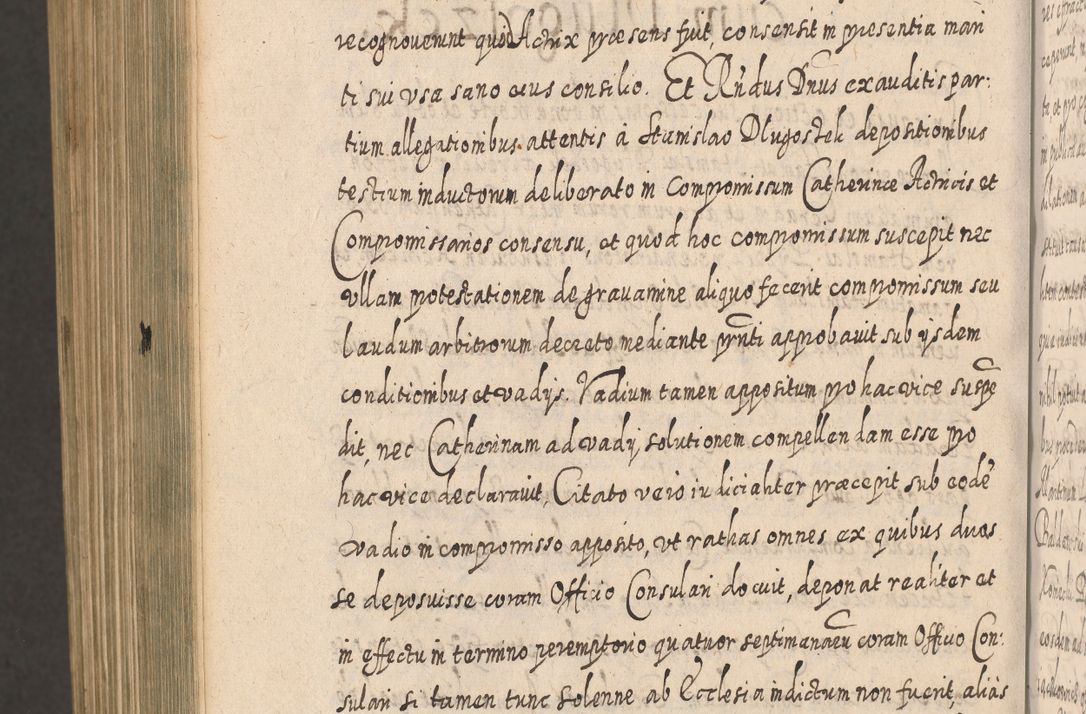 recognoverunt quod Actrix præsens fuit, consensit in presentia mari
ti sui usa sano eius consilio. Et Rndus Dnus exauditis par:
tium allegationibus attentis à Stanislao Dlugoszek depositionibus
testium inductorum deliberato in Compromissum Catherinæ Actricis et
Compromissarios consensu, et quod hoc compromissum suscepit nec
ullam protestationem de gravamine aliquo fecerit compromissum seu
laudum arbitrorum decreto mediante pñti approbavit sub ijsdem
conditionibus et vadijs. Vadium tamen appositum pro hac vice suspē
dit, nec Catherinam ad vadij solutionem compellendam esse pro
hac vice declaravit, Citato vero iudicialiter præcepit sub eodē
vadio in compromisso apposito, ut rathas omnes ex quibus duos
se deposuisse coram Officio Consulari docuit, deponat realiter et
in effectu in termino peremptorio quatuor septimanaru coram Officio Con:
sulari si tamen tunc solenne ab Ecclesia indictum non fuerit, aliàs